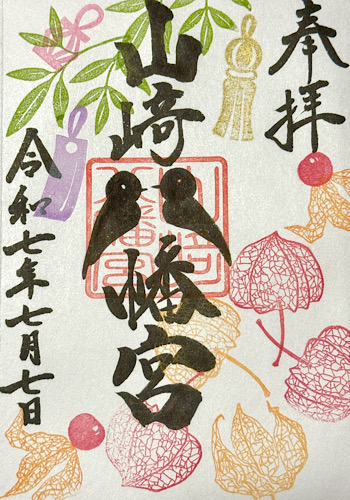 奉拝
山﨑八幡宮
山﨑八幡宮
令和七年七月七日